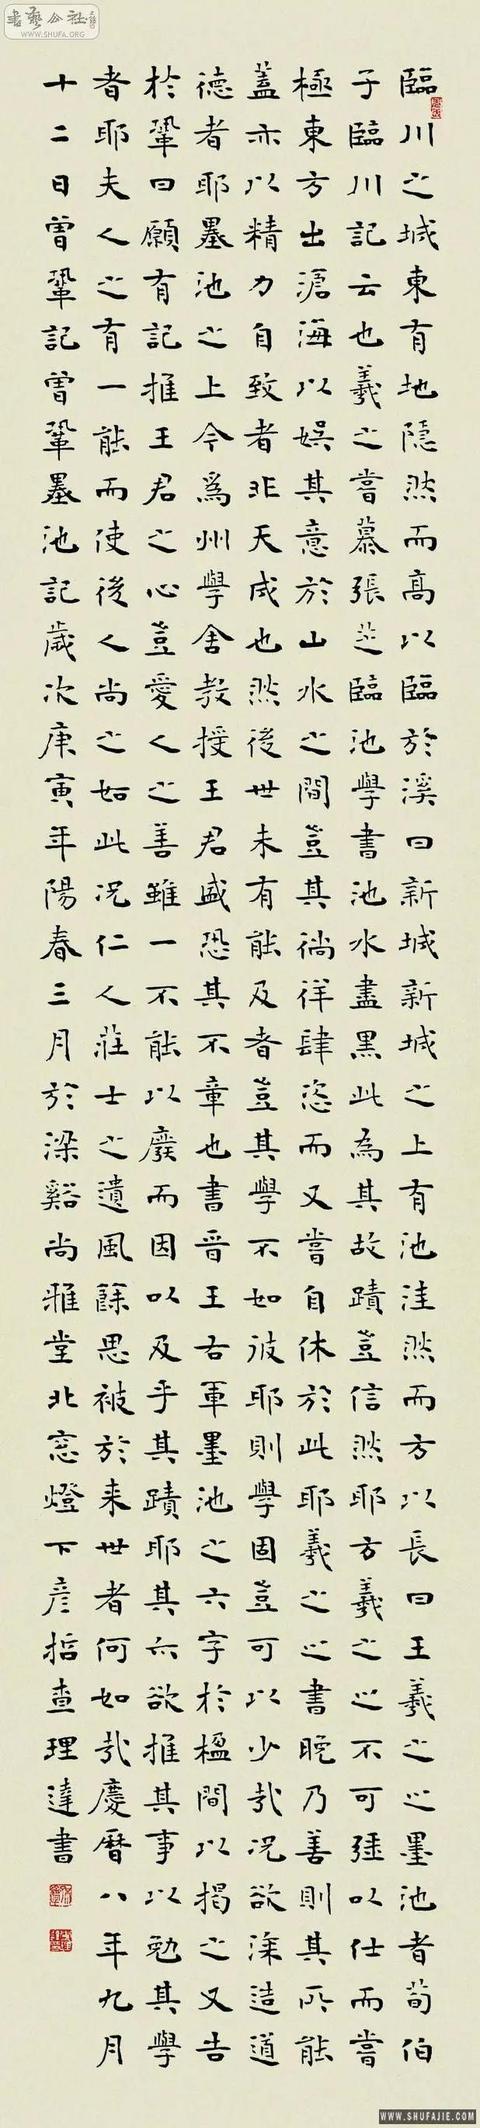 書藝公社
WWW.SHUFA.ORG
臨川之城東有地隱然而高以臨於溪曰新城新城之上有池洼然而方以長曰王羲之之墨池者荀伯
子臨川記云也羲之嘗慕張芝臨池學書池水盡黑此為其故蹟豈信然耶方羲之之不可強以仕而嘗
極東方出滄海以娛其意於山水之間豈其徜徉肆恣而又嘗自休於此耶羲之之書晚乃善則其所能
蓋亦以精力自致者非天成也然後世未有能及者豈其學不如彼耶則學固豈可以少哉況欲深造道
德者耶墨池之上今爲州學舍教授王君盛恐其不章也書晉王右軍墨池之六字於楹間以揭之又告
於鞏曰願有記推王君之心豈愛人之善雖一不能以廢而因以及乎其蹟耶其亦欲推其事以勉其學
者耶夫人之有一能而使後人尚之如此況仁人莊士之遺風餘思被於来世者何如哉慶曆八年九月
十二日曾鞏記曾鞏墨池記歲次庚寅年陽春三月於梁谿尚雅堂北窓燈下彦哲查理達書
WWW.SHUFAJIE.COM